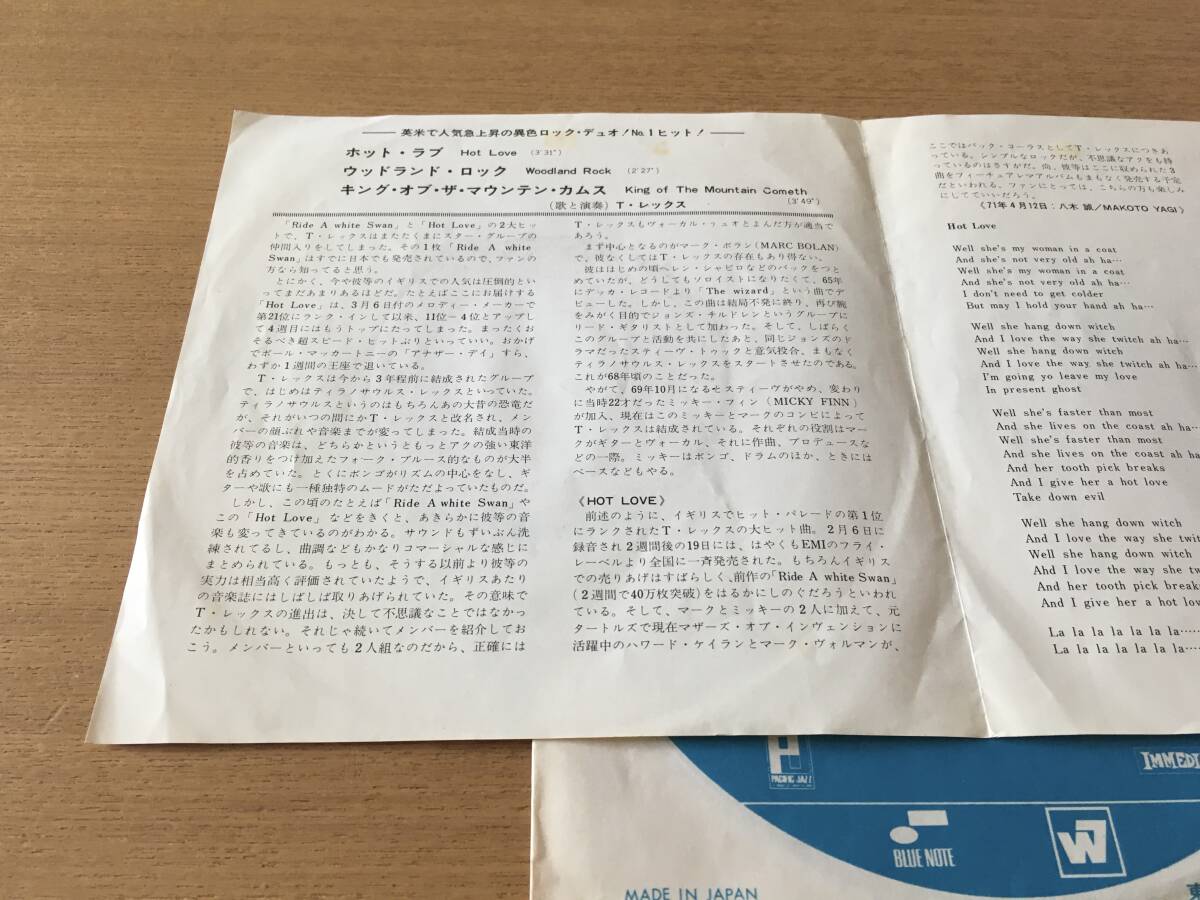 英米で人気急上昇の異色ロック・デュオ!No.1ヒット!
ホット・ラブ Hot Love (3'31")
ウッドランド・ロック Woodland Rock (2'27")
キング・オブ・ザ・マウンテン・カムス King of The Mountain Cometh
(3'49")
(歌と演奏) T・レックス
「Ride A white Swan」と「Hot Love」の2大ヒッ
トで、T・レックスはまたたくまにスター・グループの
仲間入りをしてしまった。その1枚「Ride A white
Swan」はすでに日本でも発売されているので、ファンの
方なら知ってると思う。
とにかく、今や彼等のイギリスでの人気は圧倒的とい
ってまだあまりあるほどだ。たとえばここにお届けする
「Hot Love」は、3月6日付のメロディー・メーカーで
第21位にランク・インして以来、11位−4位とアップし
て4週目にはもうトップにたってしまった。まったくお
そるべき超スピード・ヒットぶりといっていい。おかげ
でポール・マッカートニーの「アナザー・デイ」すら、
わずか1週間の王座で退いている。
T・レックスは今から3年程前に結成されたグループ
で、はじめはティラノサウルス・レックスといっていた。
ティラノサウルスというのはもちろんあの大昔の恐竜だ
が、それがいつの間にかT・レックスと改名され、メン
バーの顔ぶれや音楽までが変ってしまった。結成当時の
彼等の音楽は、どちらかというともっとアクの強い東洋
的香りをつけ加えたフォーク・ブルース的なものが大半
を占めていた。とくにボンゴがリズムの中心をなし、ギ
ターや歌にも一種独特のムードがただよっていたものだ。
しかし、この頃のたとえば「Ride A white Swan」や
この「Hot Love」などをきくと、あきらかに彼等の音
楽も変ってきているのがわかる。サウンドもずいぶん洗
練されてるし、曲調などもかなりコマーシャルな感じに
まとめられている。もっとも、そうする以前より彼等の
実力は相当高く評価されていたようで、イギリスあたり
の音楽誌にはしばしば取りあげられていた。その意味で
T・レックスの進出は、決して不思議なことではなかっ
たかもしれない。それじゃ続いてメンバーを紹介してお
こう。メンバーといっても2人組なのだから、正確には
T・レックスもヴォーカル・デュオとよんだ方が適当で
あろう。
まず中心となるのがマーク・ボラン(MARC BOLAN)
で、彼なくしてはT・レックスの存在もあり得ない。
彼ははじめの頃ヘレン・シャピロなどのバックをつと
めていたが、どうしてもソロイストになりたくて、65年
にデッカ・レコードより「The wizard」という曲でデ
ビューした。しかし、この曲は結局不発に終り、再び腕
をみがく目的でジョンズ・チルドレンというグループに
リード・ギタリストとして加わった。そして、しばらく
このグループと活動を共にしたあと、同じジョンズのド
ラマだったスティーヴ・トゥックと意気投合、まもなく
ティラノサウルス・レックスをスタートさせたのである。
これが68年頃のことだった。
やがて、69年10月になるせスティーヴがやめ、変わり
に当時22才だったミッキー・フィン(MICKY FINN)
が加入、現在はこのミッキーとマークのコンビによって
T・レックスは結成されている。それぞれの役割はマー
クがギターとヴォーカル、それに作曲、プロデュースな
どの一際。ミッキーはボンゴ、ドラムのほか、ときには
ベースなどもやる。
《HOT LOVE》
前述のように、イギリスでヒット・パレードの第1位
にランクされたT・レックスの大ヒット曲。2月6日に
録音され2週間後の19日には、はやくもEMIのフライ・
レーベルより全国に一斉発売された。もちろんイギリス
での売りあげはすばらしく、前作の「Ride A white Swan」
(2週間で40万枚突破)をはるかにしのぐだろうといわれ
ている。そして、マークとミッキーの2人に加えて、元
タートルズで現在マザーズ・オブ・インヴェンションに
活躍中のハワード・ケイランとマーク・ヴォルマンが、
ここではバック・コーラスとしてT・レックスにつきあ
っている。シンプルなロックだが、不思議なアクをも持
っているのはさすがだ。尚、彼等はここに収められた3
曲をフィーチュアしマアルバムもまもなく発売する予定
だといわれる。ファンにとっては、こちらの方も楽しみ
にしてていいだろう。
《71年4月12日:八木 誠/MAKOTO YAGI》
Hot Love
Well she's my woman in a coat
And she's not very old ah ha…
Well she's my woman in a coat
And she's not very old ah ha…
I don't need to get colder
But may I hold your hand ah ha…
Well she hang down witch
And I love the way she twitch ah ha…
Well she hang down witch
And I love the way she twitch ah ha…
I'm going yo leave my love
In present ghost
Well she's faster than most
And she lives on the coast ah ha…
Well she's faster than most
And she lives on the coast ah ha
And her tooth pick breaks
And I give her a hot love
Take down evil
Well she hang down witch
And I love the way she twit
Well she hang down witch
Ahd I love the way she tw
And her tooth pick break
And I give her a hot lov
La la la la la la la……
La la la la la la la……
PACIFIC JAZZ
IMMEDI
BLUE NOTE
W
MADE IN JAPAN
東